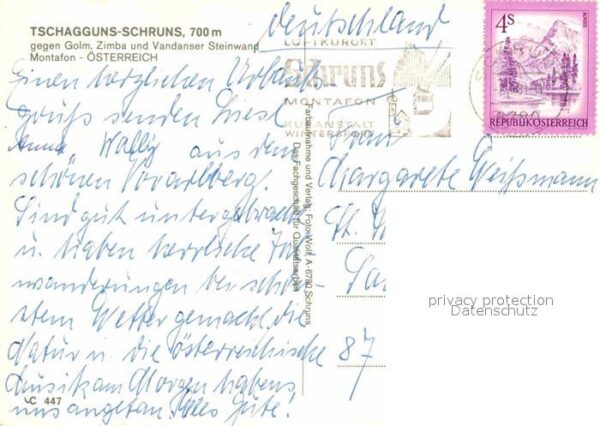 TSCHAGGUNS-SCHRUNS, 700 m
gegen Golm, Zimba und Vandanser Steinwand
Montafon - ÖSTERREICH
Einen herzlichen Urlaubs
gruß senden Liesl
Anna Wally aus dem
schönen Vorarlberg.
Sind gut untergebracht
u. haben herrliche
wanderungen bei schön-
stem Wetter gemacht, die
Natur u. die österreichische
Musik am Morgen haben's
uns angetan. Alles Gute!
C 447
Farbaufnahme und Verlag: Foto-Wolf, A-6780 Schruns
Das Fachgeschäft für Qualitätsarbeit
Deutschland
LUFTKURORT
Schruns
MONTAFON
KURANSTALT
WINTERSPORT
4S
REPUBLIK ÖSTERREICH
Frau
Margarete Weißmann
St.
87
privacy protection
Datenschutz